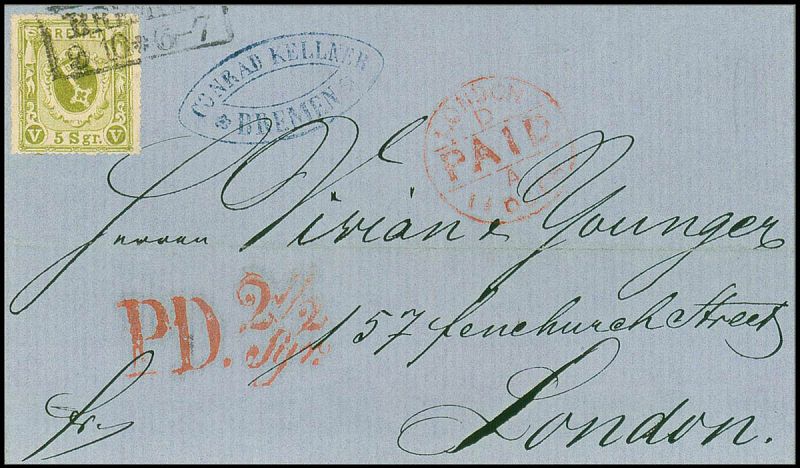 BREMEN
9 10 * 6-7
BREMEN
V 5 Sgr. V
CONRAD KELLNER
* BREMEN *
LONDON
PAID
Herren Vivian & Younger
157 fenchurch Street
London.
PD. 2 1/2
Sgr.
fr.